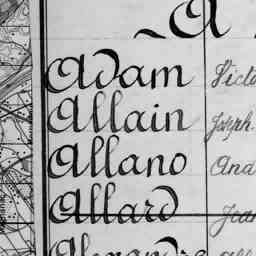 A
Adam Victo
Allain Joseph
Allano And
Allard Jean
Alexandre